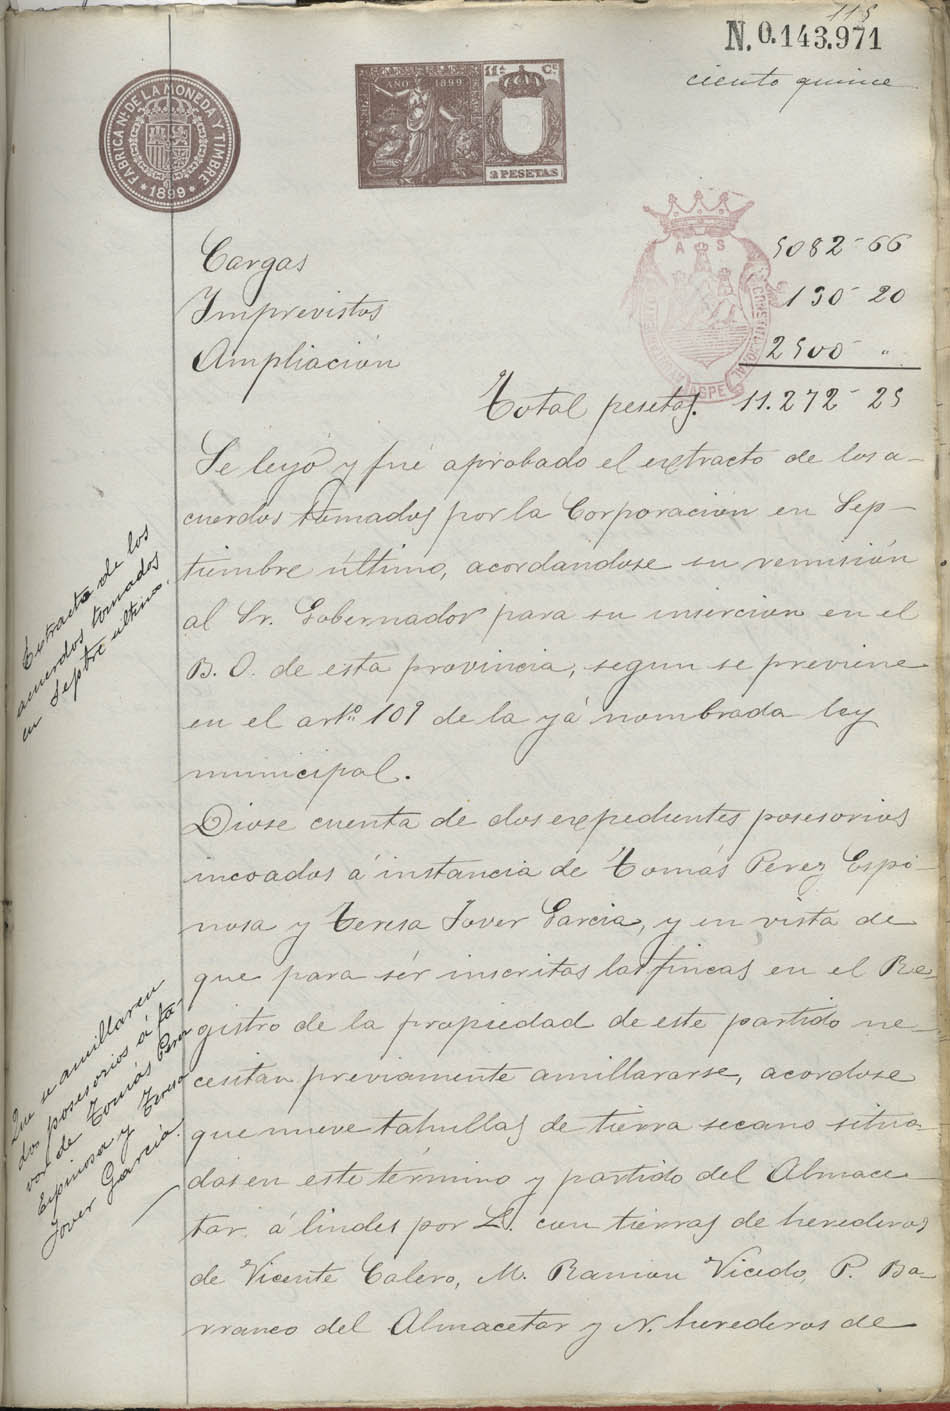 115
N. 0.143.971
ciento quince
FÁBRICA Nal. DE LA MONEDA Y TIMBRE
* 1899 *
AÑO 1899
11ª Ce
2 PESETAS
A S
CONSTITUCIONAL
ASPE
Cargas 5082-66
Imprevistos 190-20
Ampliación 2500- "
Total pesetas. 11.272-25
Se leyó y fué aprobado el extracto de los a-
cuerdos tomados por la Corporación en Sep-
tiembre último, acordandose su remisión
al Sr. Gobernador para su inserción en el
B. O. de esta provincia, segun se previene
en el artº 109 de la yá nombrada ley
municipal.
Extracto de los
acuerdos tomados
en Septbre último.
Diose cuenta de dos expedientes posesorios
incoados á instancia de Tomás Perez Espi-
nosa y Teresa Jover Garcia, y en vista de
que para sér inscritas las fincas en el Re-
gistro de la propiedad de este partido ne-
cesitan previamente amillararse, acordose
que nueve tahullas de tierra secano situa-
das en este término y partido del Almace-
tar, á lindes por L. con tierras de herederos
de Vicente Calero, M. Ramon Vicedo, P. Ba-
rranco del Almacetar y N. herederos de
Que se amillaren
dos posesorios á fa-
vor de Tomás Perez
Espinosa y Teresa
Jover García.